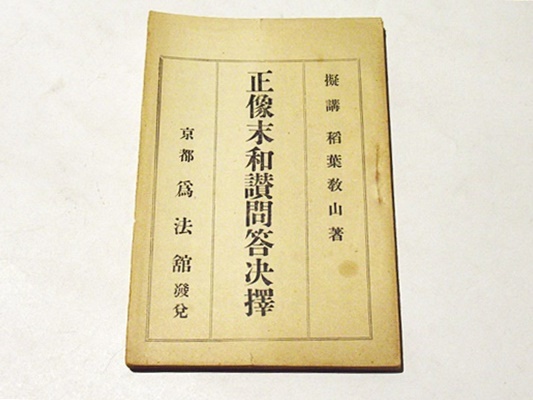 擬講 稻葉教山著
正像末和讃問答决擇
京都 爲法舘 發兌